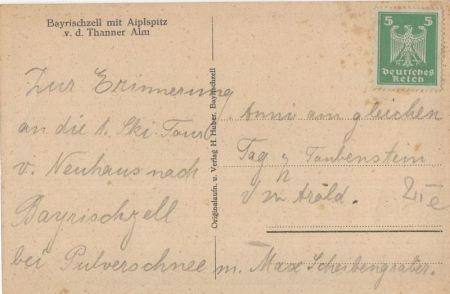 Bayrischzell mit Aiplspitz
v. d. Thanner Alm
5 5
Deutsches
Reich
Zur Erinnerung
an die 1. Ski Tour
v. Neuhaus nach
Bayrischzell
bei Pulverschnee m. Max Scheibengraber.
Originalaufn. u. Verlag H. Huber, Bayrischzell
Anni am gleichen
Tag Taubenstein